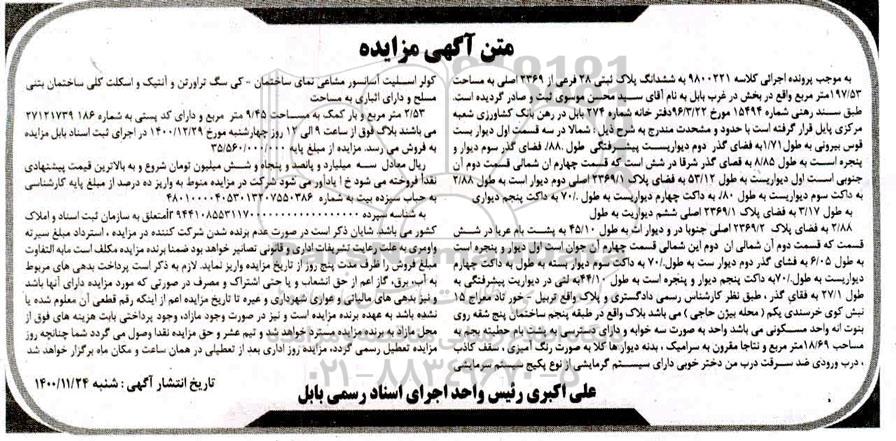 متن آگهی مزایده
به موجب پرونده اجرائی کلاسه ۹۸۰۰۲۲۱ به ششدانگ پلاک ثبتی ۲۸ فرعی از ۲۳۶۹ اصلی به مساحت
۱۹۷/۵۳متر مربع واقع در بخش در غرب بابل به نام آقای سید محسن موسوی ثبت و صادر گردیده است.
طبق سند رهنی شماره ۱۵۴۹۴ مورخ ۹۶/۳/۲۲دفتر خانه شماره ۲۷۴ بابل در رهن بانک کشاورزی شعبه
مرکزی بابل قرار گرفته است با حدود و مشخصات مندرج به شرح ذیل : شمالا در سه قسمت اول دیوار بست
قوس بیرونی به طول ۱/۷۱به فضای گذر دوم دیواریست پیشرفتگی طول ۰/۸۸ به فضای گذر سوم دیوار و
پنجره است به طول ۸/۸۵ به فضای گذر شرقا در شش است که قسمت چهارم ان شمالی قسمت دوم آن
جنوبی است اول دیواریست به طول ۵۳/۱۲ به فضای پلاک ۲۳۶۹/۱ اصلی دوم دیوار است به طول ۲/۸۸
به داکت سوم دیواریست به طول ۸۰/ به داکت چهارم دیواریست به طول ۷۰/ به داکت پنجم دیواری
به طول ۳/۱۷ به فضای پلاک ۲۳۶۹/۱ اصلی ششم دیواریت به طول
۲/۸۸ به فضای پلاک ۲۳۶۹/۲ اصلی جنوبا در و دیوار ات به طول ۴۵/۱۰ به پشت بام عربا در شش
قسمت که قسمت دوم آن شمالی ان دوم این شمالی قسمت چهارم آن جوان است اول دیوار و پنجره است
به طول ۶/۰۵ به فضای گذر دوم دیوار ست به طول ۷۰/ به داکت سوم دیوار بسته به طول به داکت چهارم
دیواریست به طول ۷۰/به داکت پنجم دیوار و پنجره است به طول ۴۴/۱۰به لتی در دیواریت پیشرفتگی به
طول ۲۷/۱ به فقای گذر ، طبق نظر کارشناس رسمی دادگستری و پلاک واقع تربیل - خور تاد معراج ۱۵
نبش کوی خرسندی یکم ( محله بیژن حاجی ) می باشد بلاک واقع در طبقه پنجم ساختمان پنج شقه روی
بنوت انه واحد مسکونی می باشد واحد به صورت سه خوابه و دارای دسترسی به پشت بام حطیبه بجم به
مساحت ۱۸/۶۹متر مربع و نتاجا مقرون به سرامیک ، بدنه دیوار ها گلا به صورت رنگ آمیزی ، سقف کاذب
، درب ورودی ضد سرقت درب من دختر خوبی دارای سیستم گرمایشی از نوع پکیج شیستم سرمایشی
کولر اسلیت آسانسور مشاعی نمای ساختمان - کی سگ تراورتن و آنتیک و اسکلت کلی ساختمان بتنی
مسلح و دارای انباری به مساحت
۲/۵۳ متر مربع و بار کمک به مساحت ۹/۴۵ متر مربع و دارای کد پستی به شماره ۱۸۶ ۲۷۱۲۱۷۳۹
می باشند بلاک فوق از ساعت ۹ الی ۱۲ روز چهارشنبه مورخ ۱۴۰۰/۱۲/۲۹ در اجرای ثبت اسناد بابل مزایده
به فروش می رسد. مزایده از مبلغ پایه ۳۵/۵۶۰/۰۰۰/۰۰۰
ریال معادل سه میلیارد و پانصد و پنجاه و شش میلیون تومان شروع و به بالاترین قیمت پیشنهادی
نقداً فروخته می شود خ ا یادآور می شود شرکت در مزایده منوط به واریز ده درصد از مبلغ پایه کارشناسی
به حباب سیزده بیت به شماره ۴۸۰۱۰۰۰۰۴۰۵۳۰۱۳۲۰۷۵۵۰۳۸۶
به شناسه سپرده ۹۴۴۱۰۸۵۵۳۱۱۷۰۰۰۰۰۰۰۰۰۰۰۰۰۰۰۰۰ irمتعلق به سازمان ثبت اسناد و املاک
کشور می باشد. شایان ذکر است در صورت عدم برنده شدن شرکت کننده در مزایده ، استرداد مبلغ سیرته
وامبری به علت رعایت تشریفات اداری و قانونی تصانیر خواهد بود ضمنا برنده مزایده مکلف است مابه التفاوت
مبلغ فروش را ظرف مدت پنج روز از تاریخ مزایده واریز نماید. لازم به ذکر است پرداخت بدهی های مربوط
به آب، برق، گاز اعم از حق انشعاب و یا حتی اشتراک و مصرف در صورتی که مورد مزایده دارای آنها باشد
و نیز بدهی های مالیاتی و عواری شهرداری و غیره تا تاریخ مزایده اعم از اینکه رقم قطعی آن معلوم شده یا
نشده باشد به عهده برنده مزایده است و نیز در صورت وجود مازاده، وجود پرداختی بابت هزینه های فوق از
محل مازاد به برنده مزایده مسترد خواهد شد و تیم عشر و حق مزایده نقدا وصول می گردد شما چنانچه روز
مزایده تعطیل رسمی گردد، مزایده روز اداری بعد از تعطیلی در همان ساعت و مکان ماه برگزار خواهد شد
تاریخ انتشار آگهی : شنبه ۱۴۰۰/۱۱/۲۴
علی اکبری رئیس واحد اجرای اسناد رسمی بابل